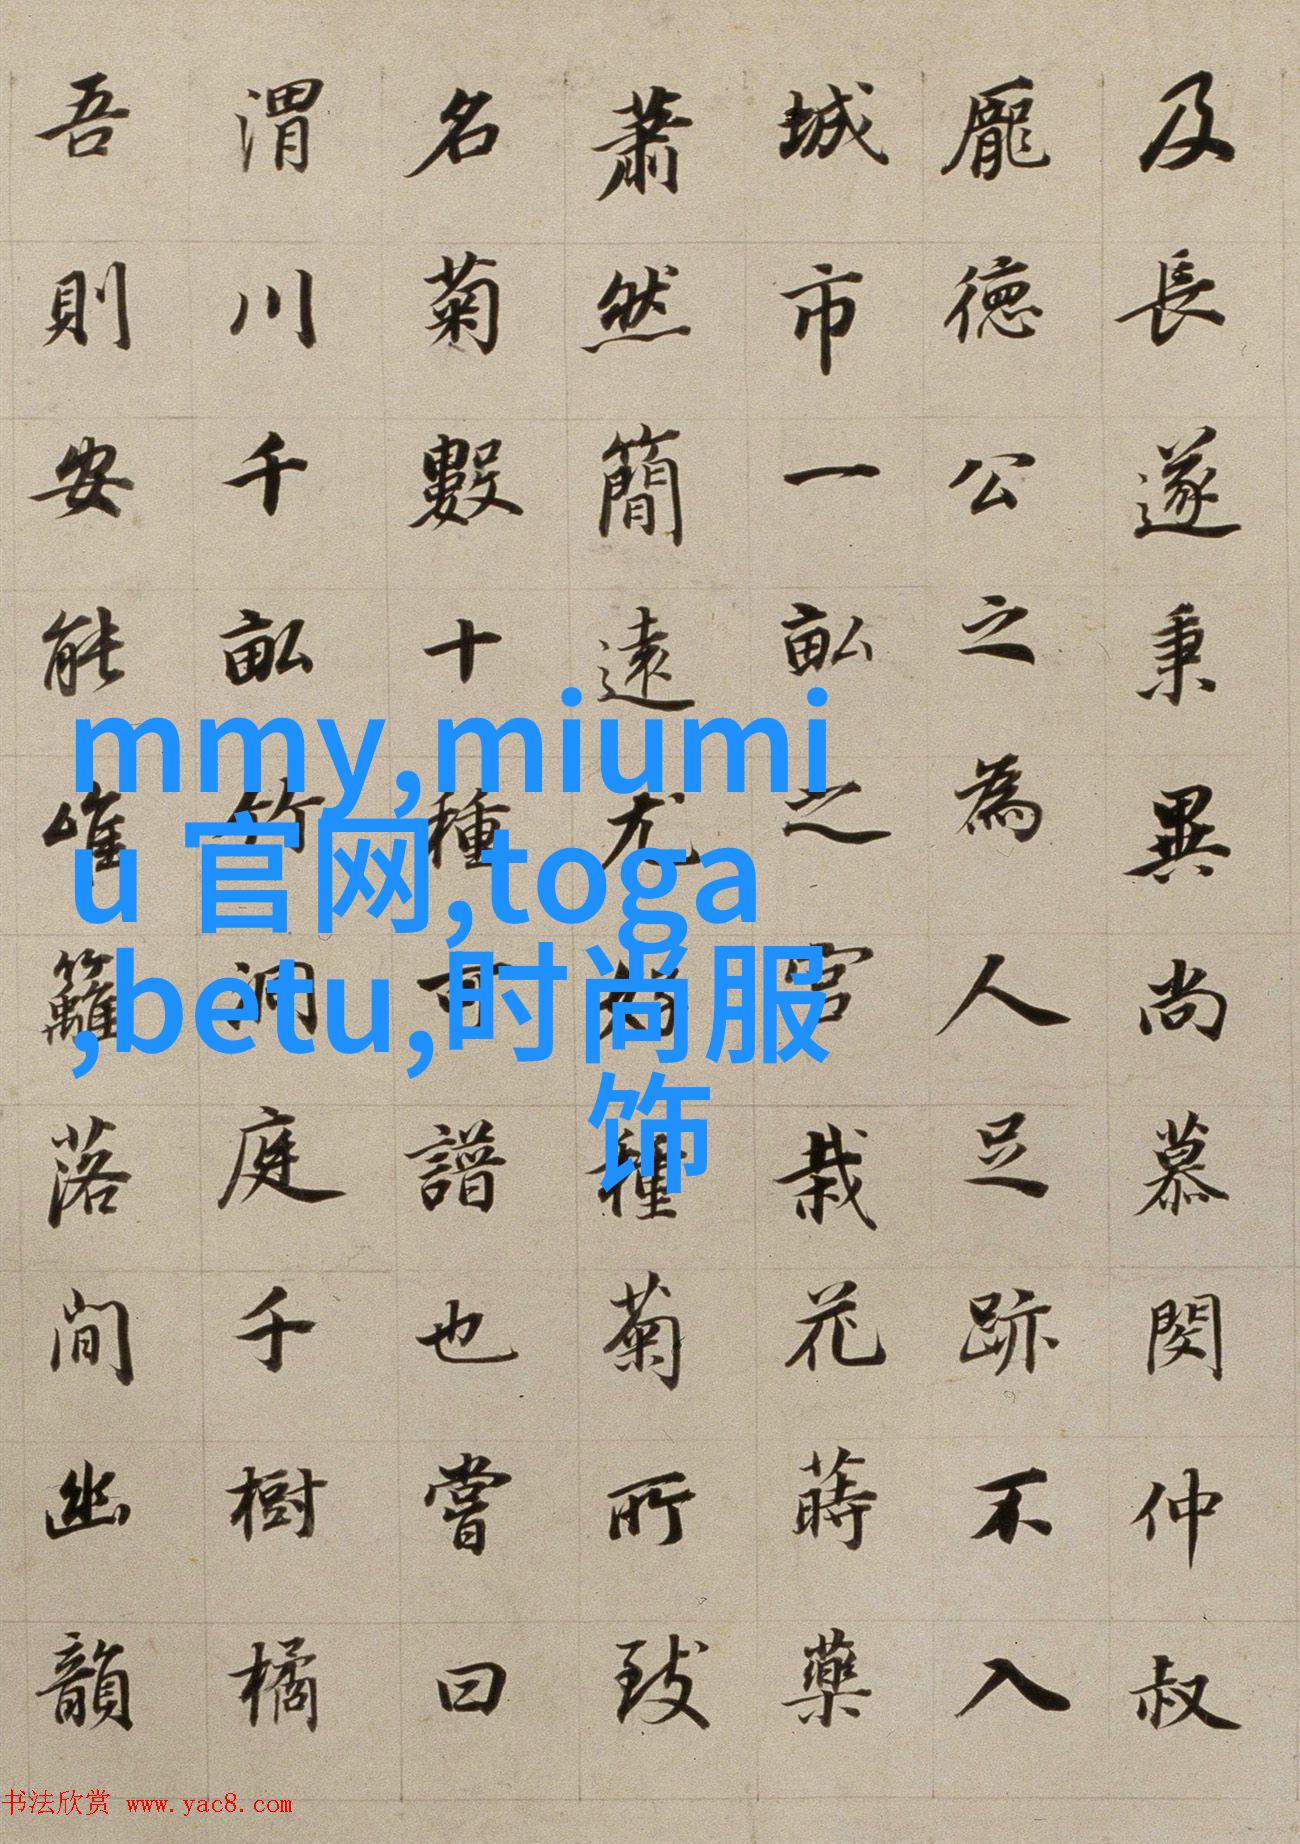 及長遂秉異尚慕閔仲叔
龐德公之為人足跡不入
城市一畝之宮栽花蒔藥
蕭然簡遠尤好種菊所致
名菊數十種可譜也嘗曰
渭川千畝竹洞庭千樹橘
吾則安能唯籬落間幽韻
mmy,miumi
u 官网,toga
,betu,时尚服
饰
书法欣赏 www.yac8.com